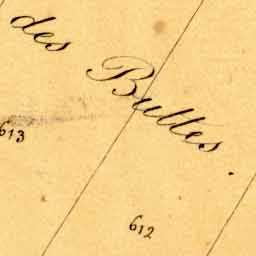 des Buttes.
613
612